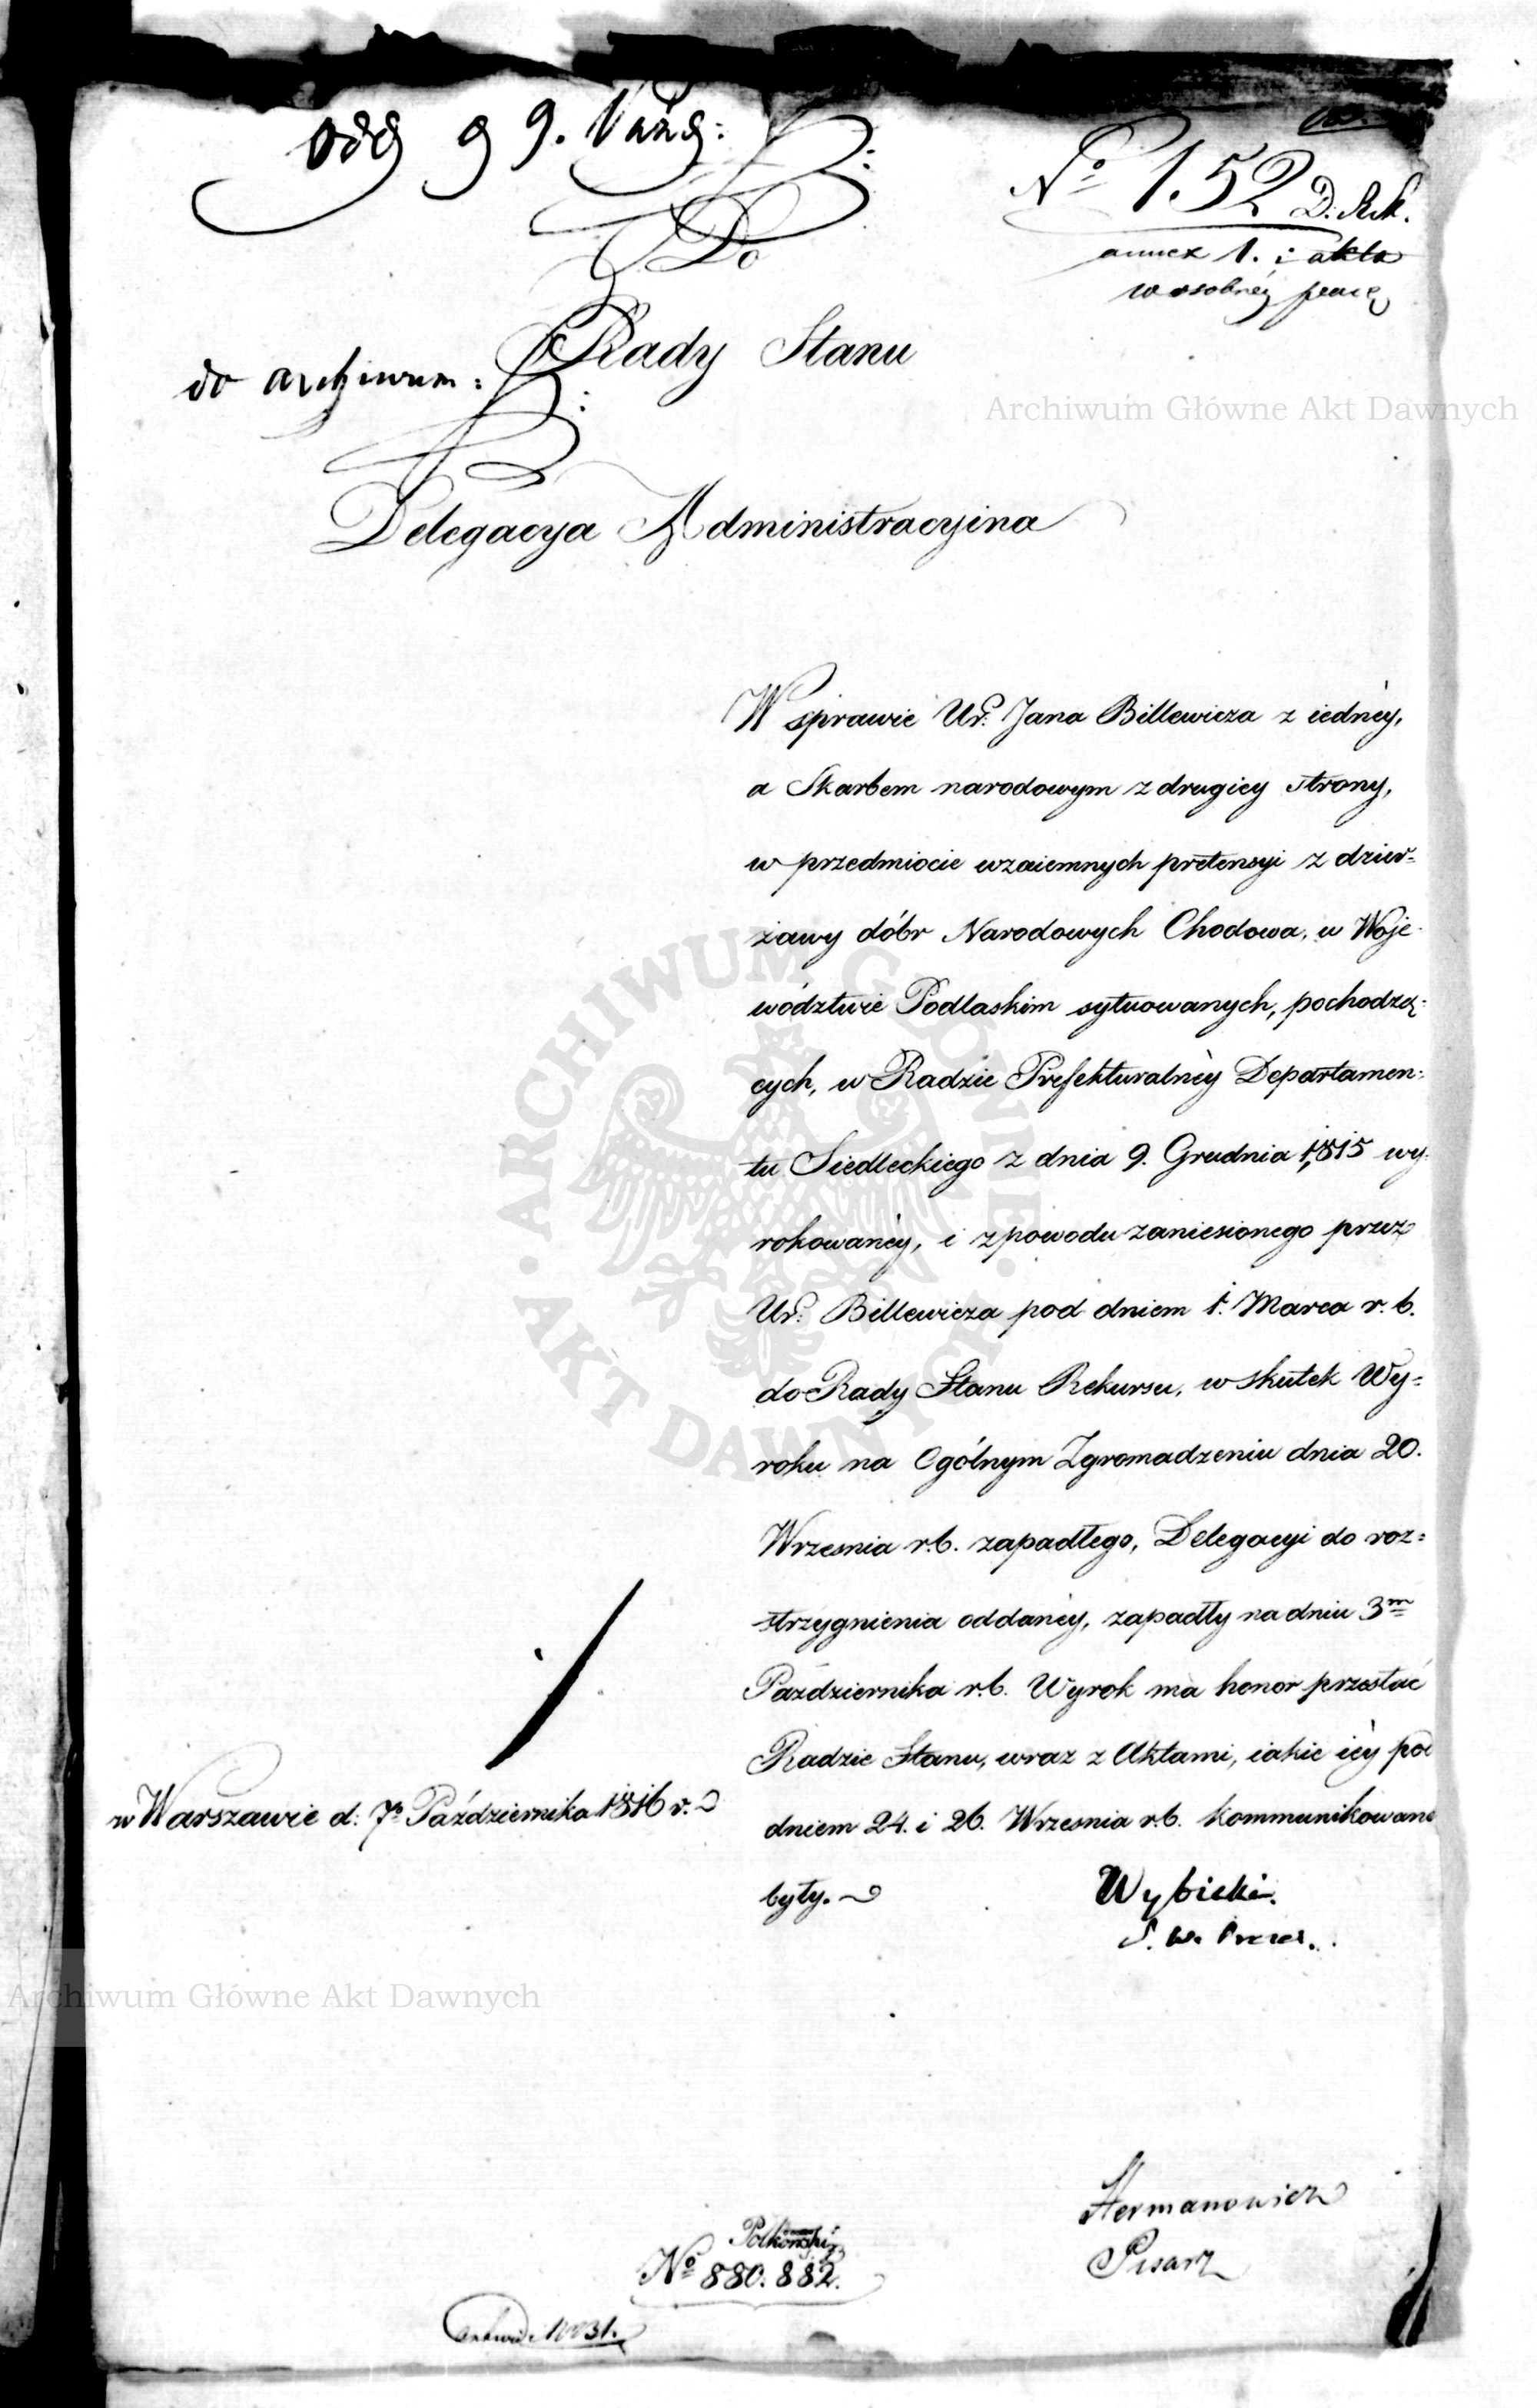 odd d 9. Paźd:
No 152 D. Rek.
annex 1. i akta
w osobnéy pacę
Do
Rady Stanu
do archiwum:
Archiwum Główne Akt Dawnych
Delegacya Administracyina
W sprawie Ur: Jana Billewicza z iednéy,
a Skarbem narodowym z drugiey strony,
w przedmiocie wzaiemnych pretensyi z dzier=
żawy dóbr Narodowych Chodowa, w Woje-
wództwie Podlaskim sytuowanych, pochodzą=
cych, w Radzie Prefekturalnéy Departamen=
tu Siedleckiego z dnia 9. Grudnia 1815 wy-
rokowanéy, i z powodu zaniesionego przez
Ur: Billewicza pod dniem 1. Marca r. b.
do Rady Stanu Rekursu, w skutek Wy=
roku na Ogólnym Zgromadzeniu dnia 20.
Wrzesnia r.b. zapadłego, Delegacyi do roz=
strzygnienia oddanéy, zapadły na dniu 3m
Października r.b. Wyrok ma honor przesłać
Radzie Stanu, wraz z Aktami, iakie iéy pod
dniem 24. i 26. Wrzesnia r.b. kommunikowane
były.
w Warszawie d: 7o Października 1816 r.
Wybicki.
S. W. Prezes.
Archiwum Główne Akt Dawnych
Hermanowicz
Pisarz
No 880. 882.
ARCHIWUM GŁÓWNE
AKT DAWNYCH